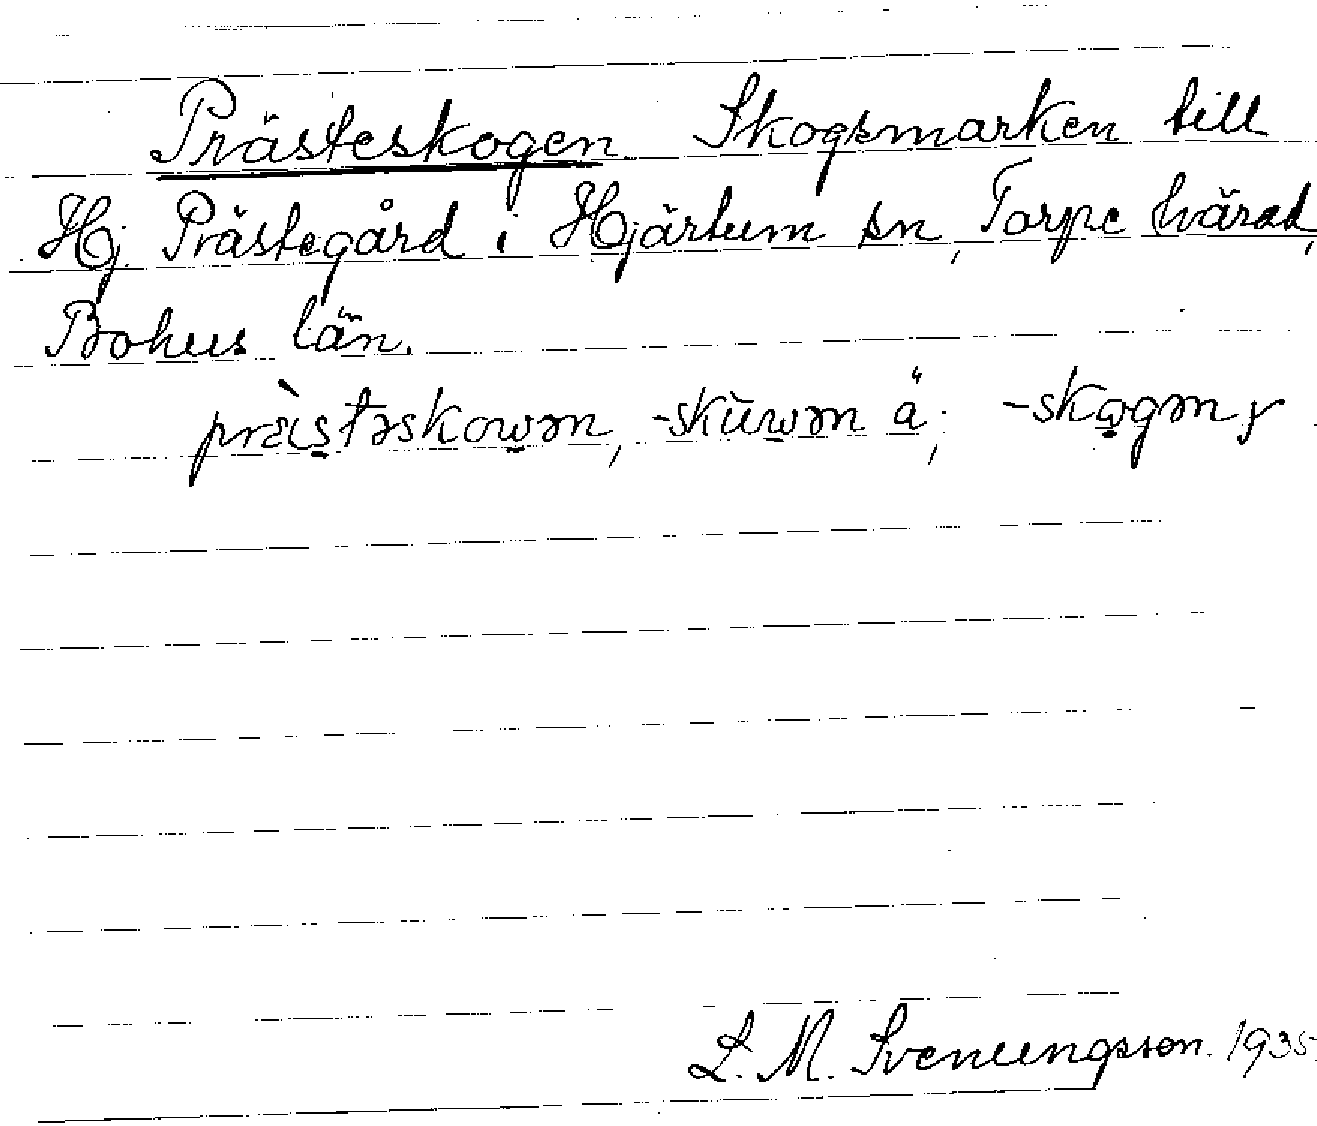 Prästeskogen Skogsmarken till
Hj. Prästegård i Hjärtum sn, Torpe härad,
Bohus län.
prä̀istəskowən, -skūwən ä; -skogən y
L. M. Svenungsson. 1935.